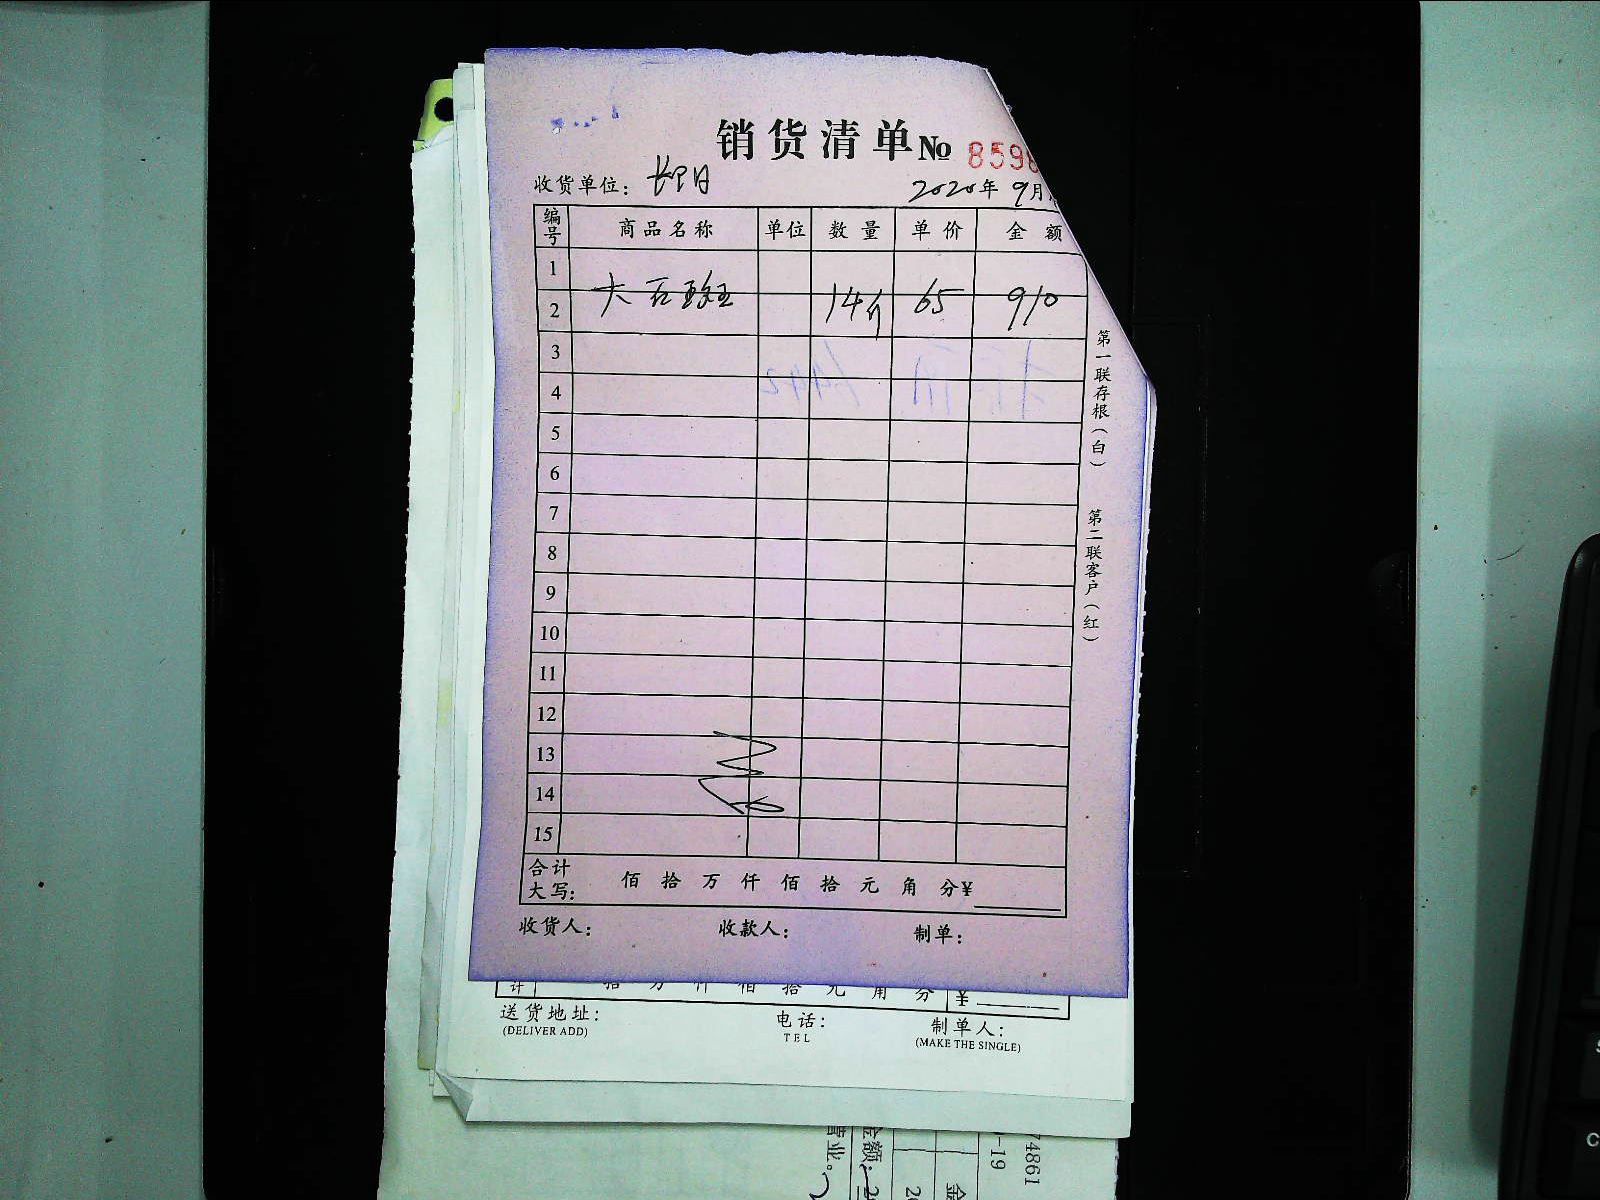 销货清单 № 8598
收货单位：
2020年 9月
编号 商品名称 单位 数量 单价 金额
1
大石斑 14个 65 910
2
3
4
5
6
7
8
9
10
11
12
13
14
15
合计
大写： 佰 拾 万 仟 佰 拾 元 角 分 ¥
收货人： 收款人： 制单：
第一联存根（白）
第二联客户（红）
计 拾 万 仟 佰 拾 元 角 分 ¥
送货地址： 电话： 制单人：
(DELIVER ADD) TEL (MAKE THE SINGLE)
74861
-19
金额：
营业。